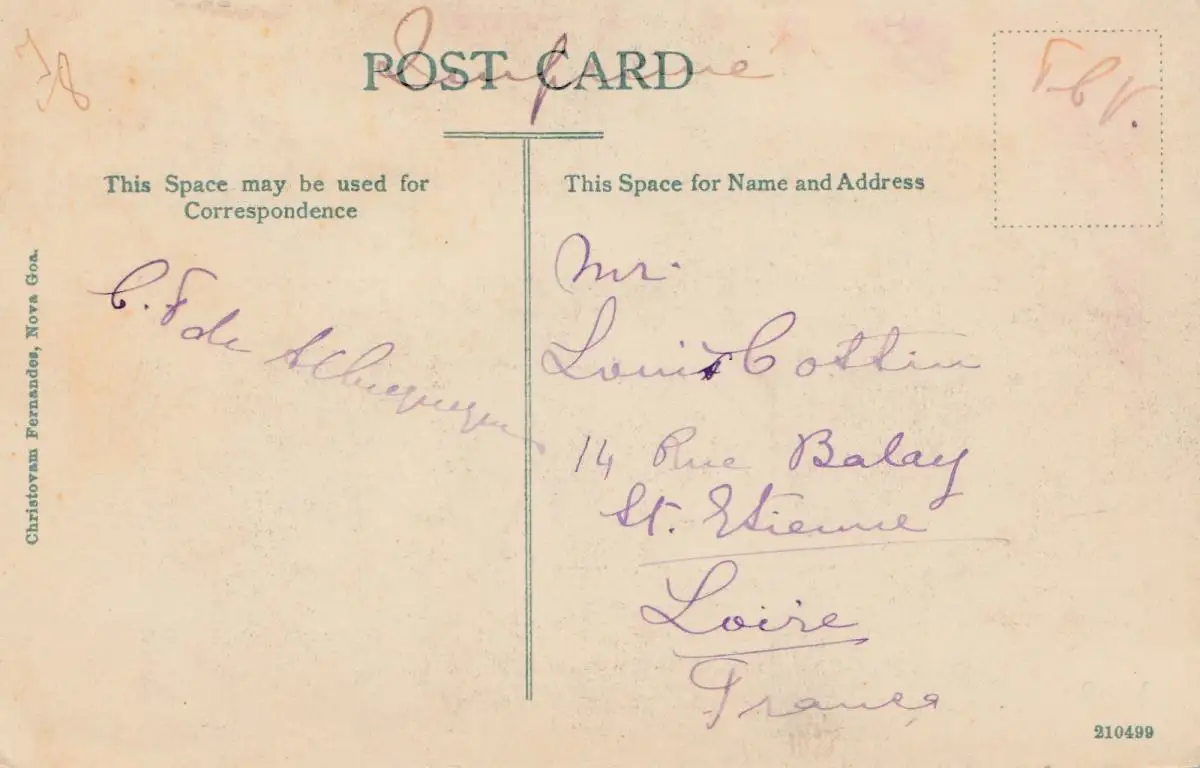 POST CARD
TCV.
This Space may be used for
Correspondence
C. F de Albuquerque
This Space for Name and Address
Mr.
Louis Cottin
14 Rue Balay
St. Etienne
Loire
France
Christovam Fernandes, Nova Goa.
210499